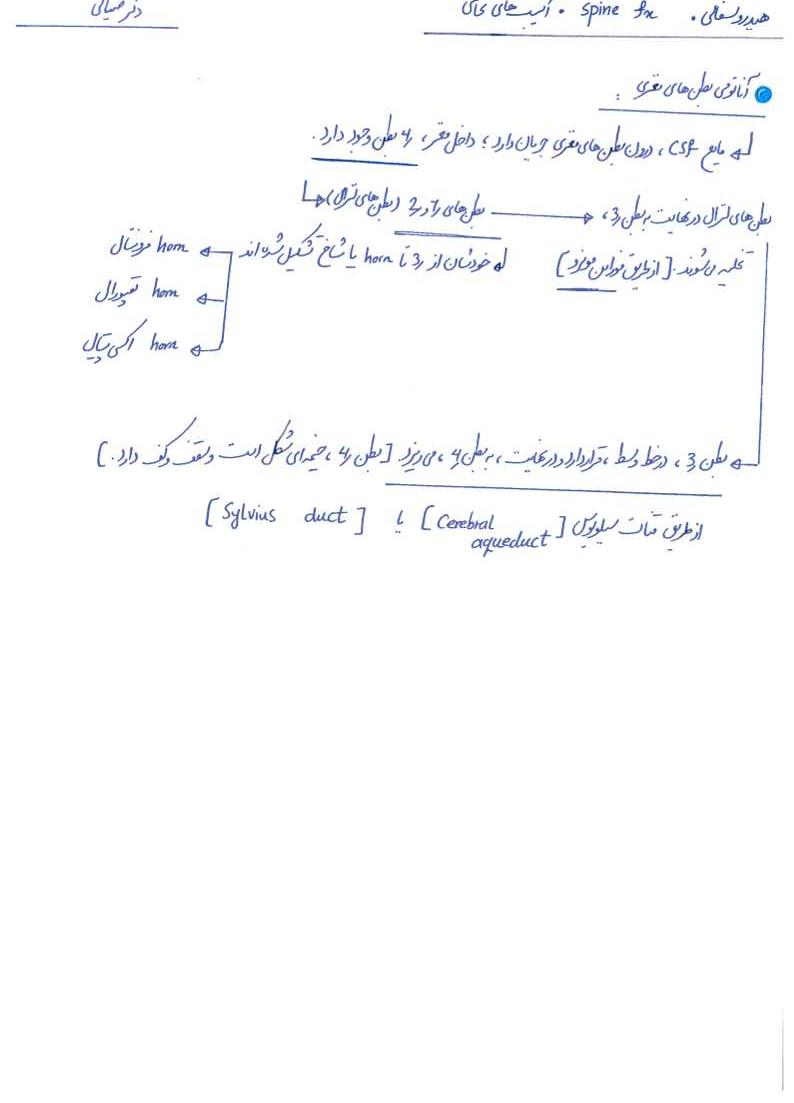 هیدروسفالی . spine fx . آسیب های
دکتر ضیائی
آناتومی بطن های مغزی :
مایع CSF ، درون بطن های مغزی جریان دارد ؛ داخل مغز ، 4 بطن وجود دارد .
بطن های 1 و 2 (بطن های لترال) بطن های لترال در نهایت به بطن 3 ،
تخلیه می شوند . [از طریق فورامن مونرو]
خودشان از 3 تا horn یا شاخ تشکیل شده اند
horn فرونتال
horn تمپورال
horn اکسی پیتال
بطن 3 ، در خط وسط ، قرار دارد و در نهایت ، به بطن 4 ، می ریزد [بطن 4 ، خیمه ای شکل است و سقف و کف دارد .]
از طریق قنات سیلویوس [Cerebral aqueduct] یا [Sylvius duct]